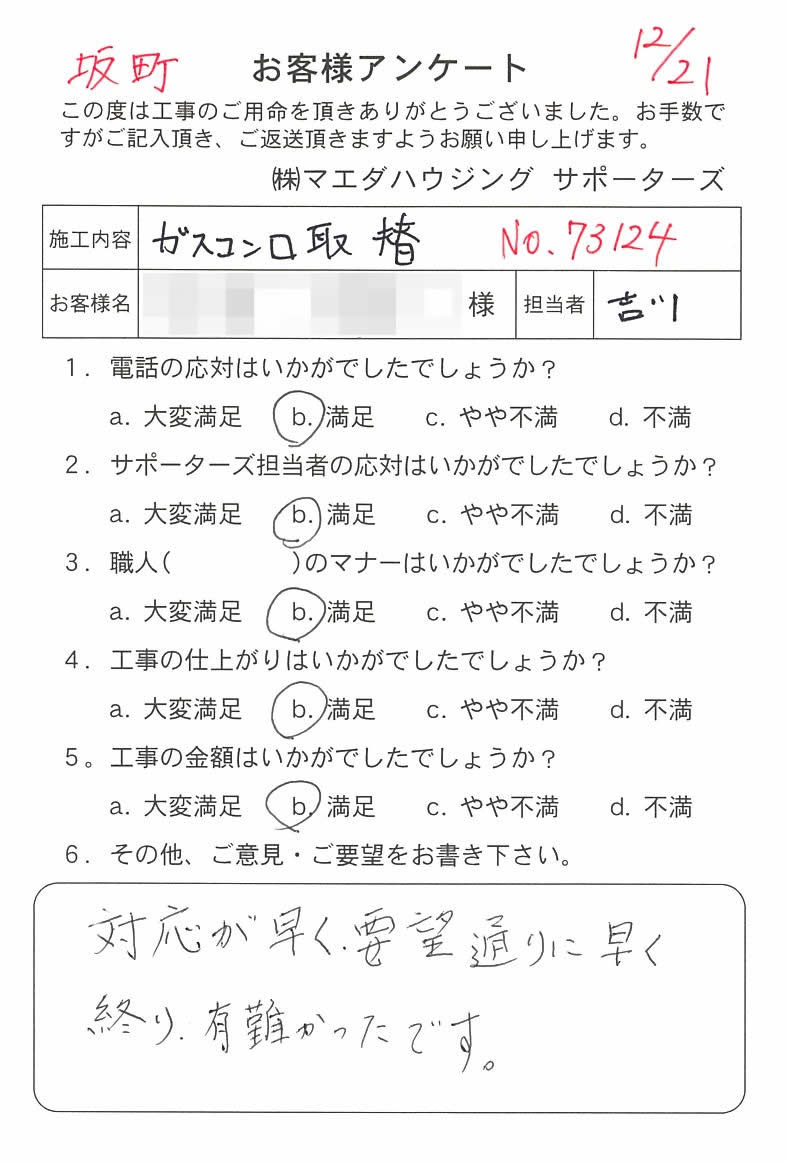 坂町 お客様アンケート 12/21
この度は工事のご用命を頂きありがとうございました。お手数で
すがご記入頂き、ご返送頂きますようお願い申し上げます。
㈱マエダハウジング サポーターズ
施工内容 ガスコンロ取替 No.73124
お客様名 様 担当者 吉川
1. 電話の応対はいかがでしたでしょうか？
a. 大変満足 b. 満足 c. やや不満 d. 不満
2. サポーターズ担当者の応対はいかがでしたでしょうか？
a. 大変満足 b. 満足 c. やや不満 d. 不満
3. 職人( )のマナーはいかがでしたでしょうか？
a. 大変満足 b. 満足 c. やや不満 d. 不満
4. 工事の仕上がりはいかがでしたでしょうか？
a. 大変満足 b. 満足 c. やや不満 d. 不満
5。工事の金額はいかがでしたでしょうか？
a. 大変満足 b. 満足 c. やや不満 d. 不満
6. その他、ご意見・ご要望をお書き下さい。
対応が早く、要望通りに早く
終り、有難かったです。